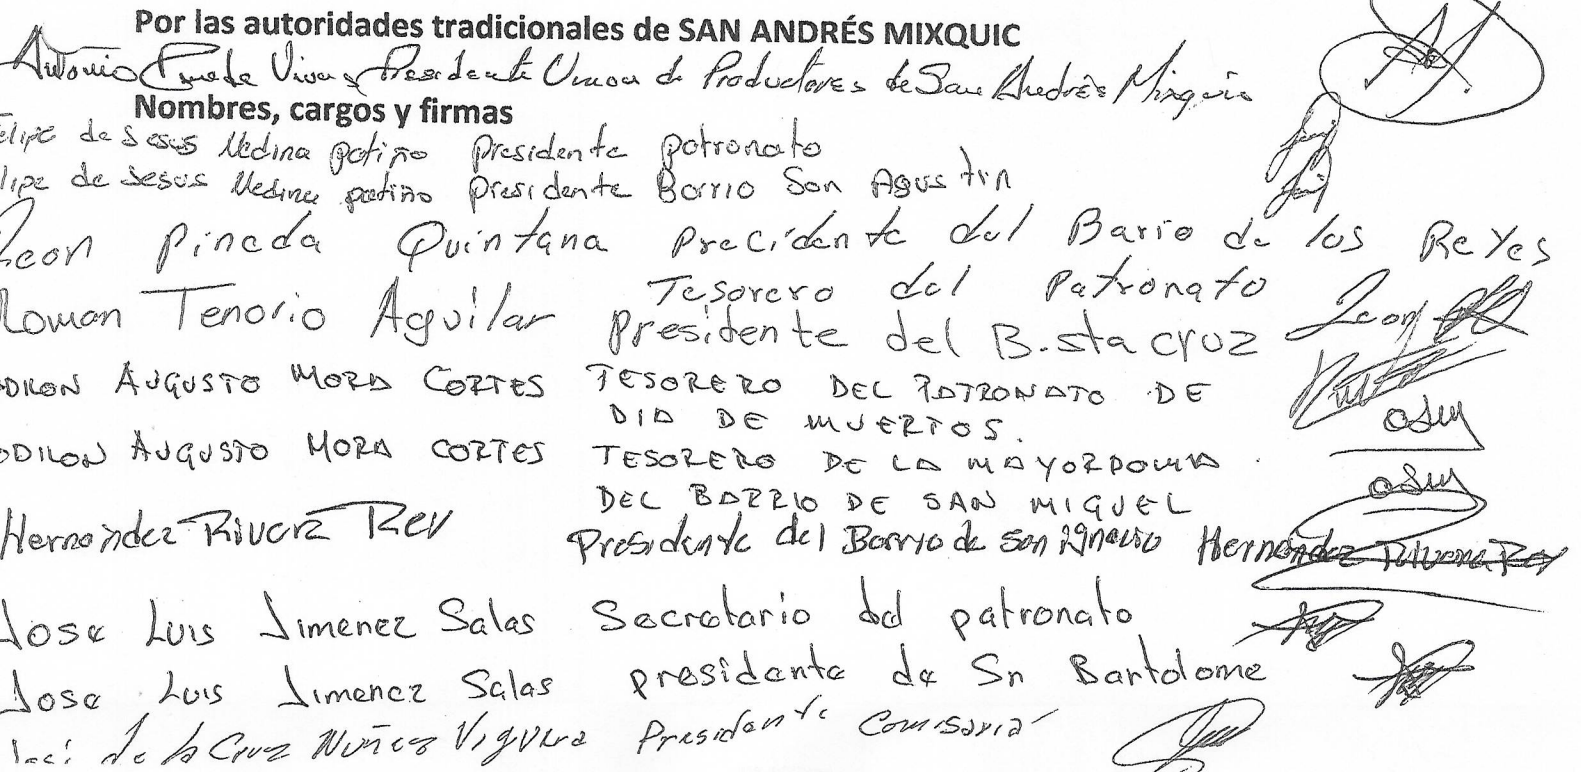 Por las autoridades tradicionales de SAN ANDRÉS MIXQUIC
Antonio Pineda Vivas Presidente Union de Productores de San Andrés Mixquic
Nombres, cargos y firmas
elipe de Jesus Medina patiño presidente patronato
lipe de Jesus Medina patiño presidente Barrio San Agustin
Leon Pineda Quintana Precidente del Bario de los Reyes
Tesorero del Patronato
Roman Tenorio Aguilar Presidente del B. sta cruz
Leon
ODILON AUGUSTO MORA CORTES TESORERO DEL PATRONATO DE
DIA DE MUERTOS.
ODILON AUGUSTO MORA CORTES TESORERO DE LA MAYORDOMIA
DEL BARRIO DE SAN MIGUEL
Hernández Rivera Rey Presidente del Barryo de san ignacio Hernández Rivera Rey
Jose Luis Jimenez Salas Secretario del patronato
Jose Luis Jimenez Salas presidente de Sn Bartolome
de la Cruz Nuñez Viguera Presidente Comisaria